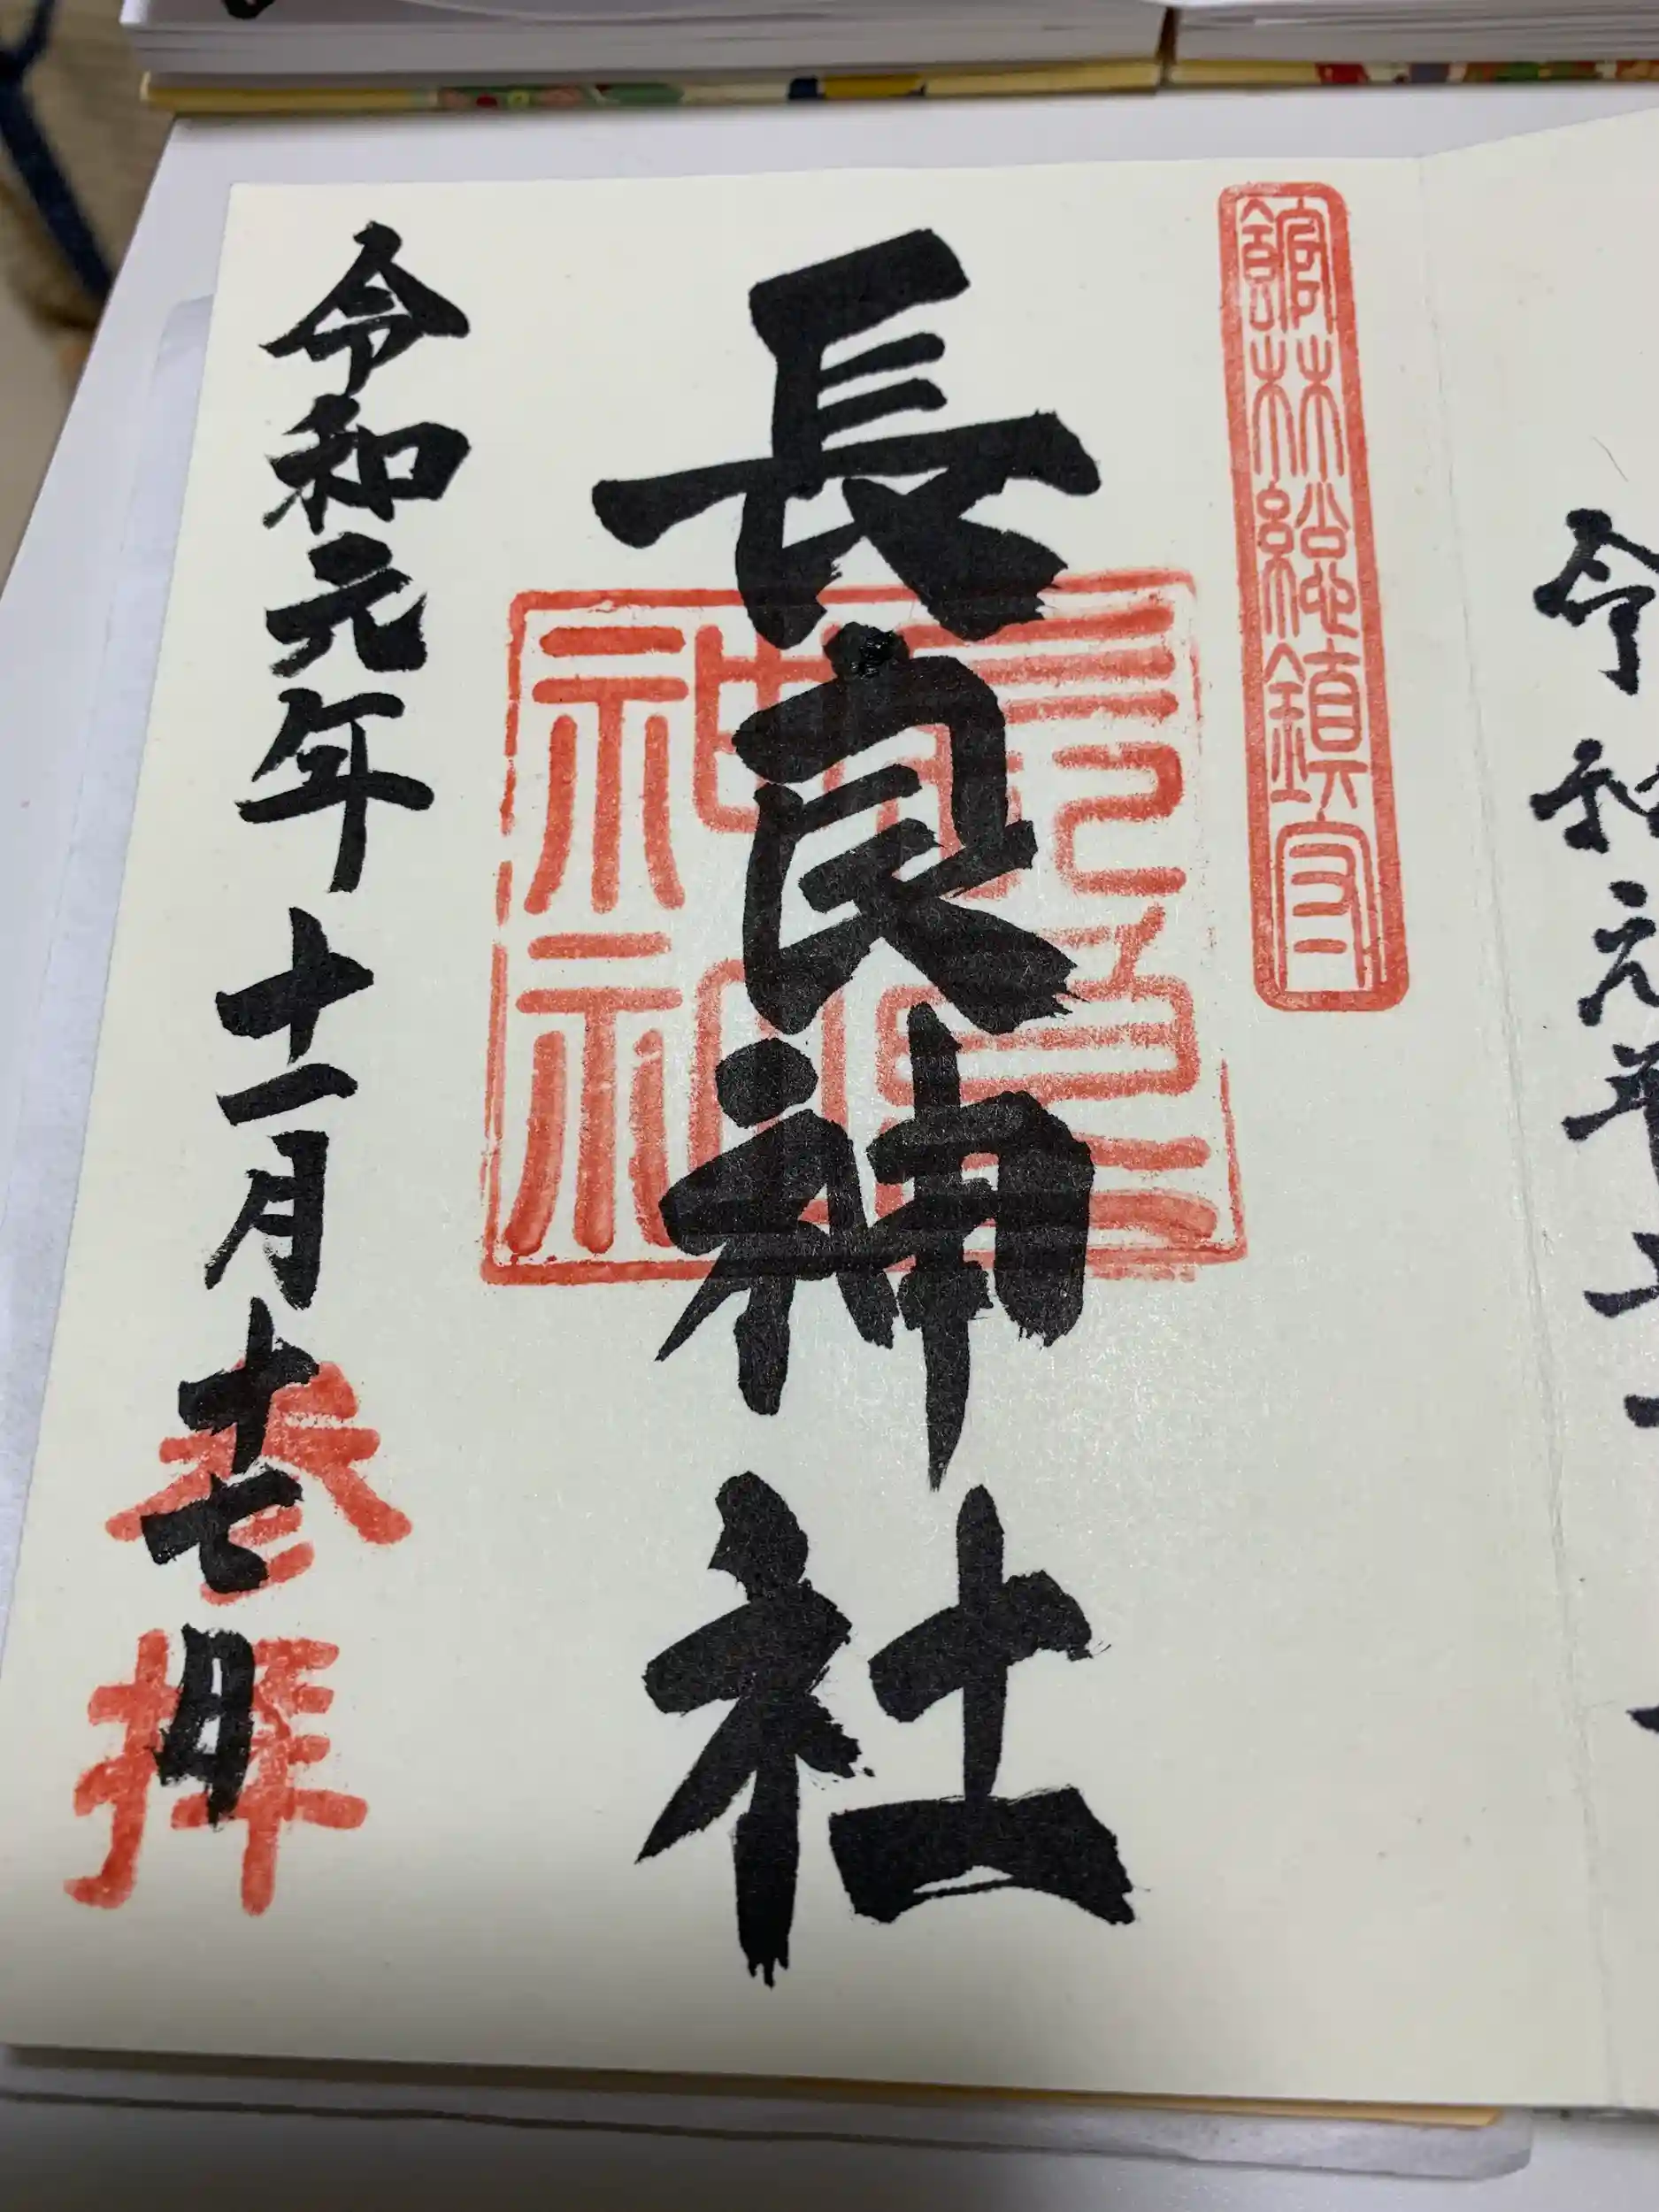 館林総鎮守
長良神社
長良神社
令和元年十一月十七日
参拝
令和元年十一